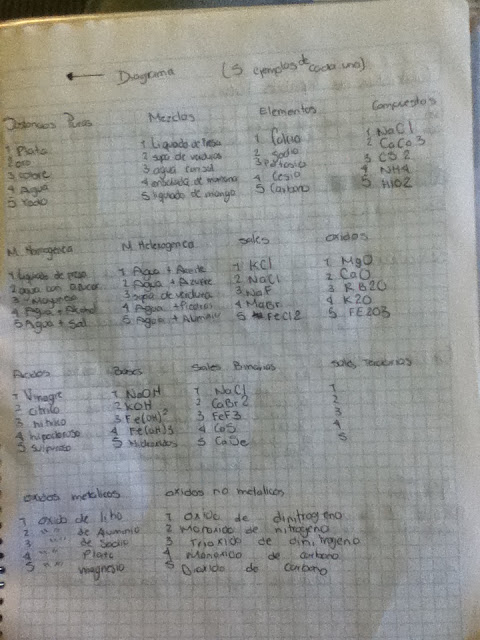 ← Diagrama (5 ejemplos de cada una)
Sustancias Puras
1 Plata
2 oro
3 cobre
4 Agua
5 Radio
Mezclas
1 Liquado de fresa
2 sopa de verduras
3 agua con sal
4 ensalada de manzana
5 liquado de mango
Elementos
1
2 Sodio
3 Potasio
4 Cesio
5 Carbono
Compuestos
1 NaCl
2 CaCo3
3 CS2
4 NH4
5 H2O2
M. Homogenea
1 Liquado de fresa
2 agua con azucar
3
4 Agua + Alcohol
5 Agua + Sal
M. Heterogenea
1 Agua + Aceite
2 Agua + Azufre
3 sopa de verdura
4 Agua + Piedras
5 Agua + Aluminio
Sales
1 KCl
2 NaCl
3 NaF
4 MgBr
5 FeCl2
oxidos
1 MgO
2 CaO
3 RB2O
4 K2O
5 FE2O3
Acidos
1 Vinagre
2 citrico
3 nitrico
4
5
Bases
1 NaOH
2 KOH
3 Fe(OH)2
4 Fe(OH)3
5 Hidroxidos
Sales Binarias
1 NaCl
2 CaBr2
3 FeF3
4 CoS
5 CaSe
Sales Terciarias
1
2
3
4
5
oxidos metalicos
1 oxido de litio
2 " " de Aluminio
3 " " de Sodio
4 " " Plata
5 " " magnesio
oxidos no metalicos
1 oxido de dinitrogeno
2 Monoxido de nitrogeno
3 Trioxido de dinitrogeno
4 Monoxido de carbono
5 Dioxido de carbono